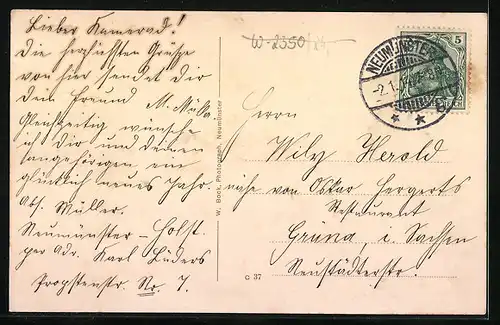 Lieber Kamerad!
Die herzlichsten Grüße
von hier sendet Dir
Dein Freund M. Müller
Gleichzeitig wünsche
ich Dir und Deinen
Angehörigen ein
glücklich neues Jahr.
Abs. Müller.
Neumünster-Holst.
per Adr. Karl Lüders
Propstenstr. Nr. 7.
W. Bock, Photograph, Neumünster
C 37
W-2350/24
5
NEUMÜNSTER
-2.1.
Herrn
Wily Herold
nähe von Oskar Hergerts
Restaurant
Grüna, i. Sachsen
Neustädterstr.